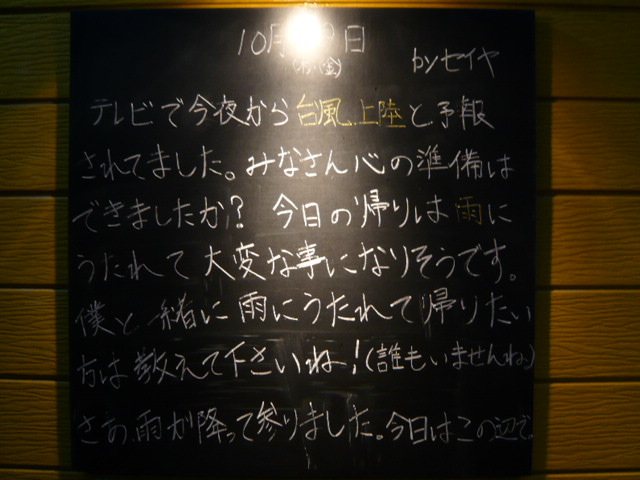 10月 日
(金)
byセイヤ
テレビで今夜から台風上陸と予報
されてました。みなさん心の準備は
できましたか? 今日の帰りは雨に
うたれて大変な事になりそうです。
僕と一緒に雨にうたれて帰りたい
方は教えて下さいね!(誰もいませんね)
さあ、雨が降って参りました。今日はこの辺で。